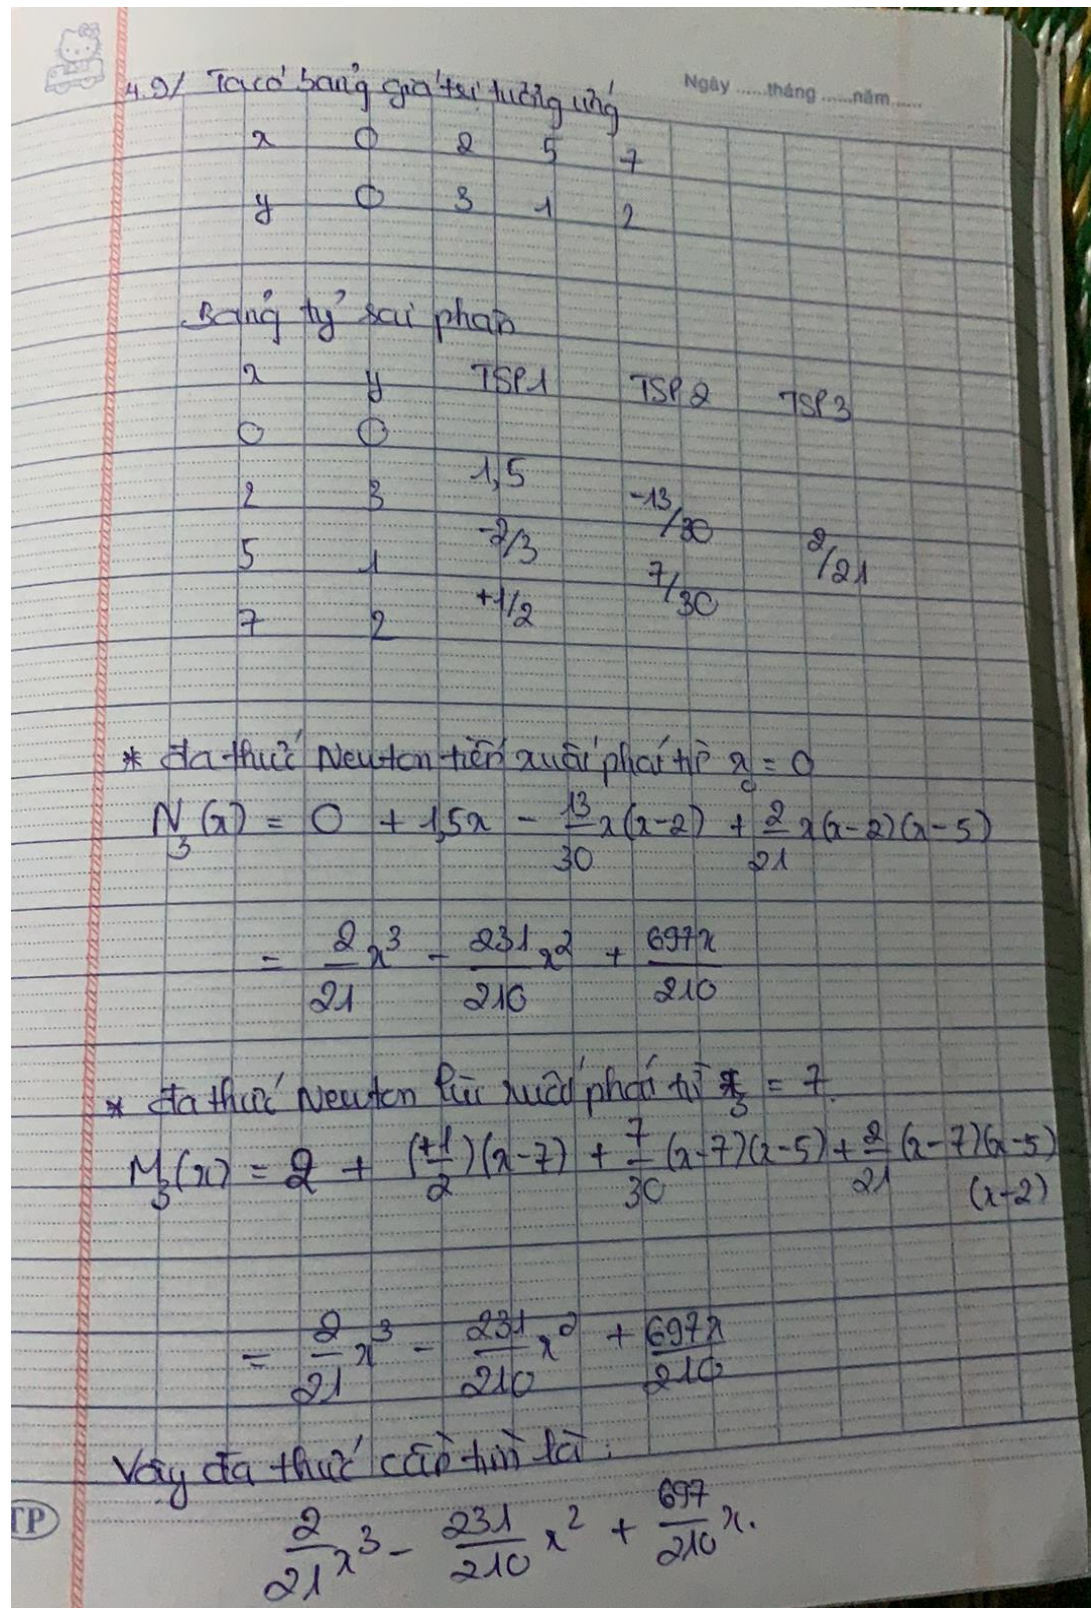 Ngày ......tháng ......năm ......
4.9/ Ta có bảng giá trị tương ứng
x 0 2 5 7
y 0 3 1 2
Bảng tỷ sai phân
x y TSP1 TSP2 TSP3
0 0
1,5
2 3 -13/30
-2/3 2/21
5 1 7/30
+1/2
7 2
* Đa thức Newton tiến xuất phát từ x₀ = 0
N₃(x) = 0 + 1,5x - 13/30 x(x-2) + 2/21 x(x-2)(x-5)
= 2/21 x³ - 231/210 x² + 697x/210
* Đa thức Newton lùi xuất phát từ x₃ = 7.
M₃(x) = 2 + (+1/2)(x-7) + 7/30 (x-7)(x-5) + 2/21 (x-7)(x-5)
(x-2)
= 2/21 x³ - 231/210 x² + 697x/210
Vậy đa thức cần tìm là:
2/21 x³ - 231/210 x² + 697/210 x.
TP